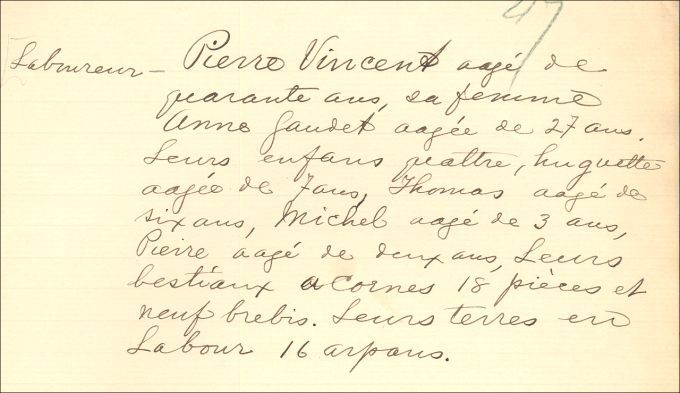 27
Laboureur - Pierre Vincent aagé de
quarante ans, sa femme
Anne Gaudet aagée de 27 ans.
Leurs enfans quattre, huguette
aagée de 7 ans, Thomas aagé de
six ans, Michel aagé de 3 ans,
Pierre aagé de deux ans, Leurs
bestiaux a Cornes 18 pièces et
neuf brebis. Leurs terres en
Labour 16 arpans.